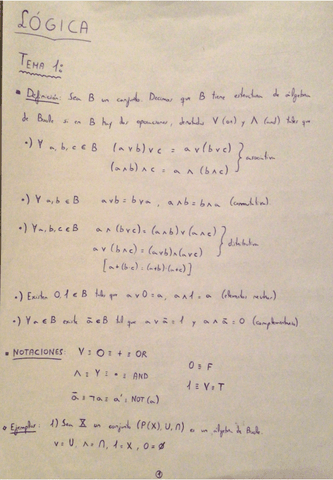 LÓGICA
TEMA 1:
• Definición: Sea B un conjunto. Decimos que B tiene estructura de álgebra
de Boole si en B hay dos operaciones, denotadas ∨ (or) y ∧ (and) tales que
•) ∀ a, b, c ∈ B (a∨b)∨c = a∨(b∨c)
(a∧b)∧c = a∧(b∧c) } asociativa
•) ∀ a, b ∈ B a∨b = b∨a, a∧b = b∧a (conmutativa).
•) ∀ a, b, c ∈ B a∧(b∨c) = (a∧b)∨(a∧c)
a∨(b∧c) = (a∨b)∧(a∨c) } distributiva
[a+(b·c) = (a+b)·(a+c)]
•) Existen 0, 1 ∈ B tales que a∨0 = a, a∧1 = a (elementos neutros).
•) ∀ a ∈ B existe ā ∈ B tal que a∨ā = 1 y a∧ā = 0 (complementario)
• NOTACIONES: ∨ ≡ O ≡ + ≡ OR
0 ≡ F
∧ ≡ Y ≡ • ≡ AND
1 ≡ V ≡ T
ā ≡ ¬a ≡ a' ≡ NOT(a)
• Ejemplos: 1) Sea X un conjunto (P(X), ∪, ∩) es un álgebra de Boole.
∨ = ∪, ∧ = ∩, 1 = X, 0 = ∅
1